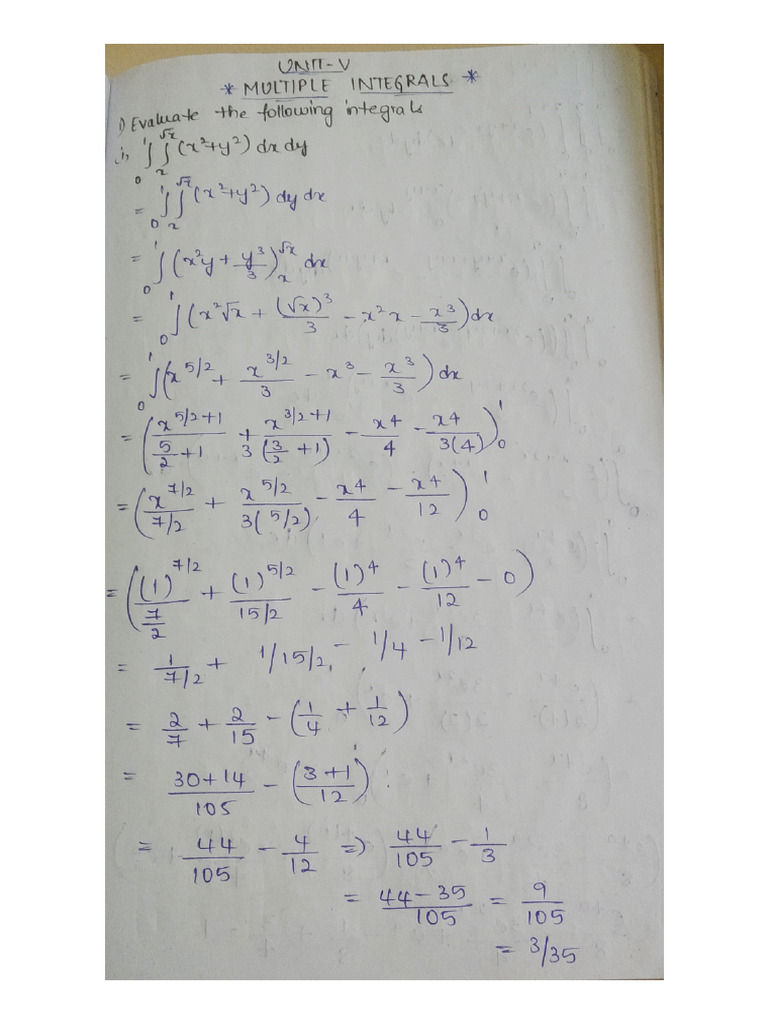 UNIT-V
* MULTIPLE INTEGRALS *
1) Evaluate the following integrals
i, ∫₀¹ ∫ₓ^√x (x²+y²) dx dy
= ∫₀¹ ∫ₓ^√x (x²+y²) dy dx
= ∫₀¹ (x²y + y³/3)ₓ^√x dx
= ∫₀¹ (x²√x + (√x)³/3 - x²x - x³/3) dx
= ∫₀¹ (x^5/2 + x^3/2/3 - x³ - x³/3) dx
= (x^5/2+1/(5/2+1) + x^3/2+1/3(3/2+1) - x4/4 - x4/3(4))₀¹
= (x^7/2/7/2 + x^5/2/3(5/2) - x4/4 - x4/12)₀¹
= ((1)^7/2/(7/2) + (1)^5/2/15/2 - (1)^4/4 - (1)^4/12 - 0)
= 1/7/2 + 1/15/2 - 1/4 - 1/12
= 2/7 + 2/15 - (1/4 + 1/12)
= 30+14/105 - (3+1/12)
= 44/105 - 4/12 => 44/105 - 1/3
= 44-35/105 = 9/105
= 3/35